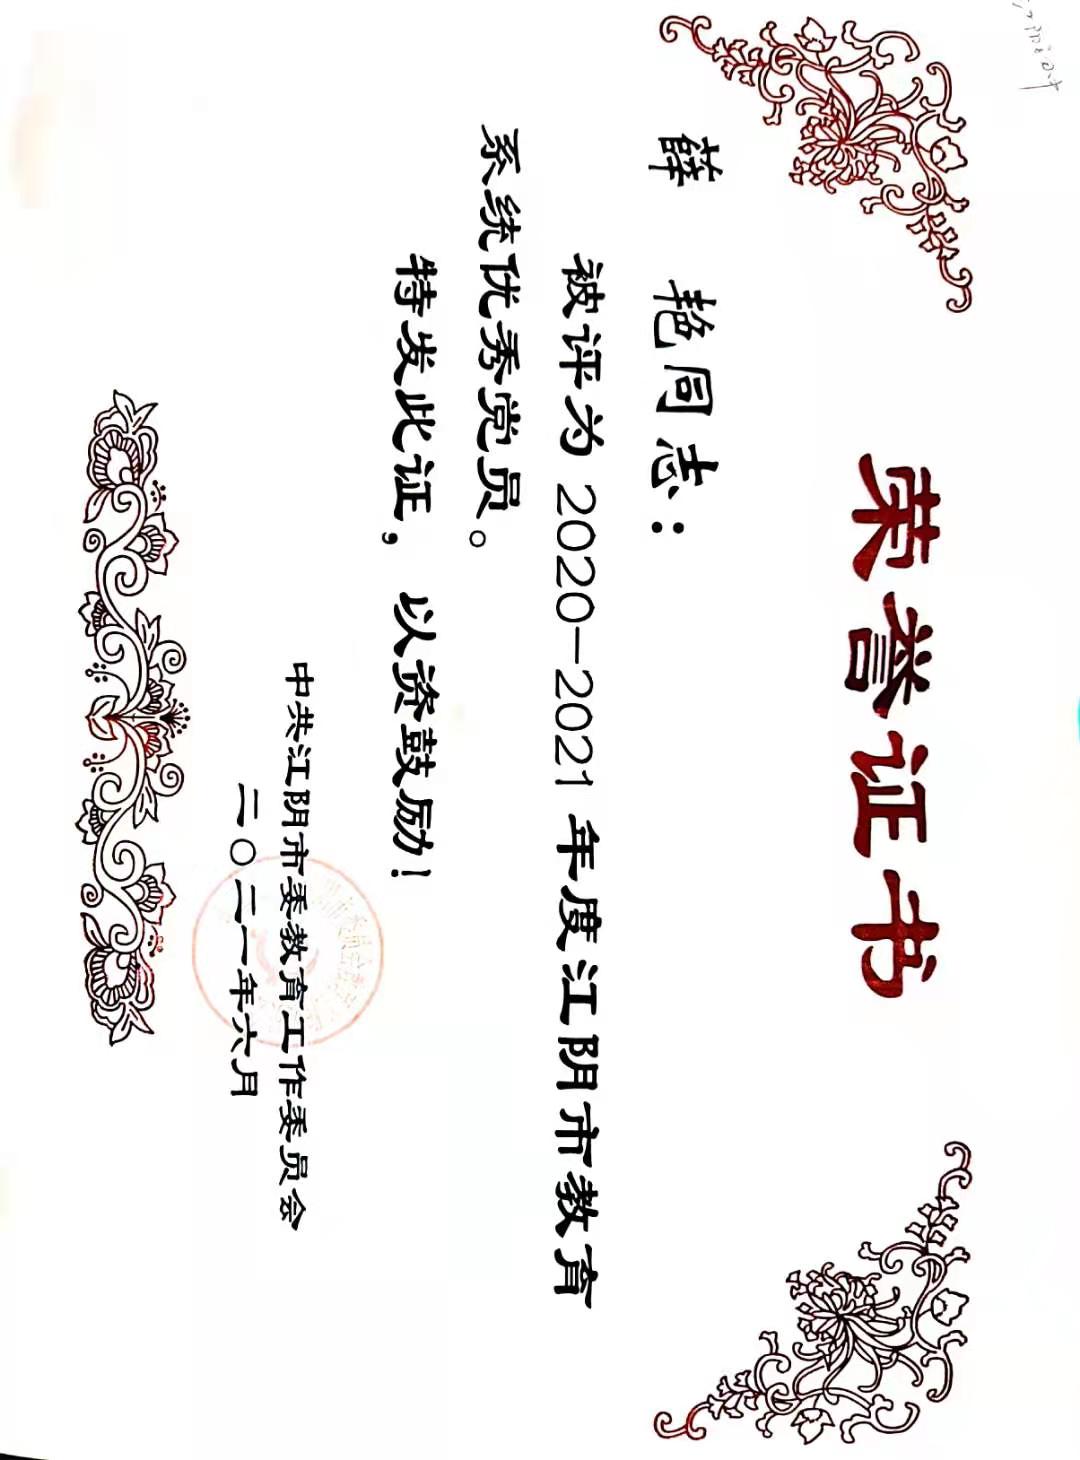 荣誉证书
薛 艳同志：
被评为 2020-2021 年度江阴市教育
系统优秀党员。
特发此证，以资鼓励！
中共江阴市委教育工作委员会
二〇二一年六月